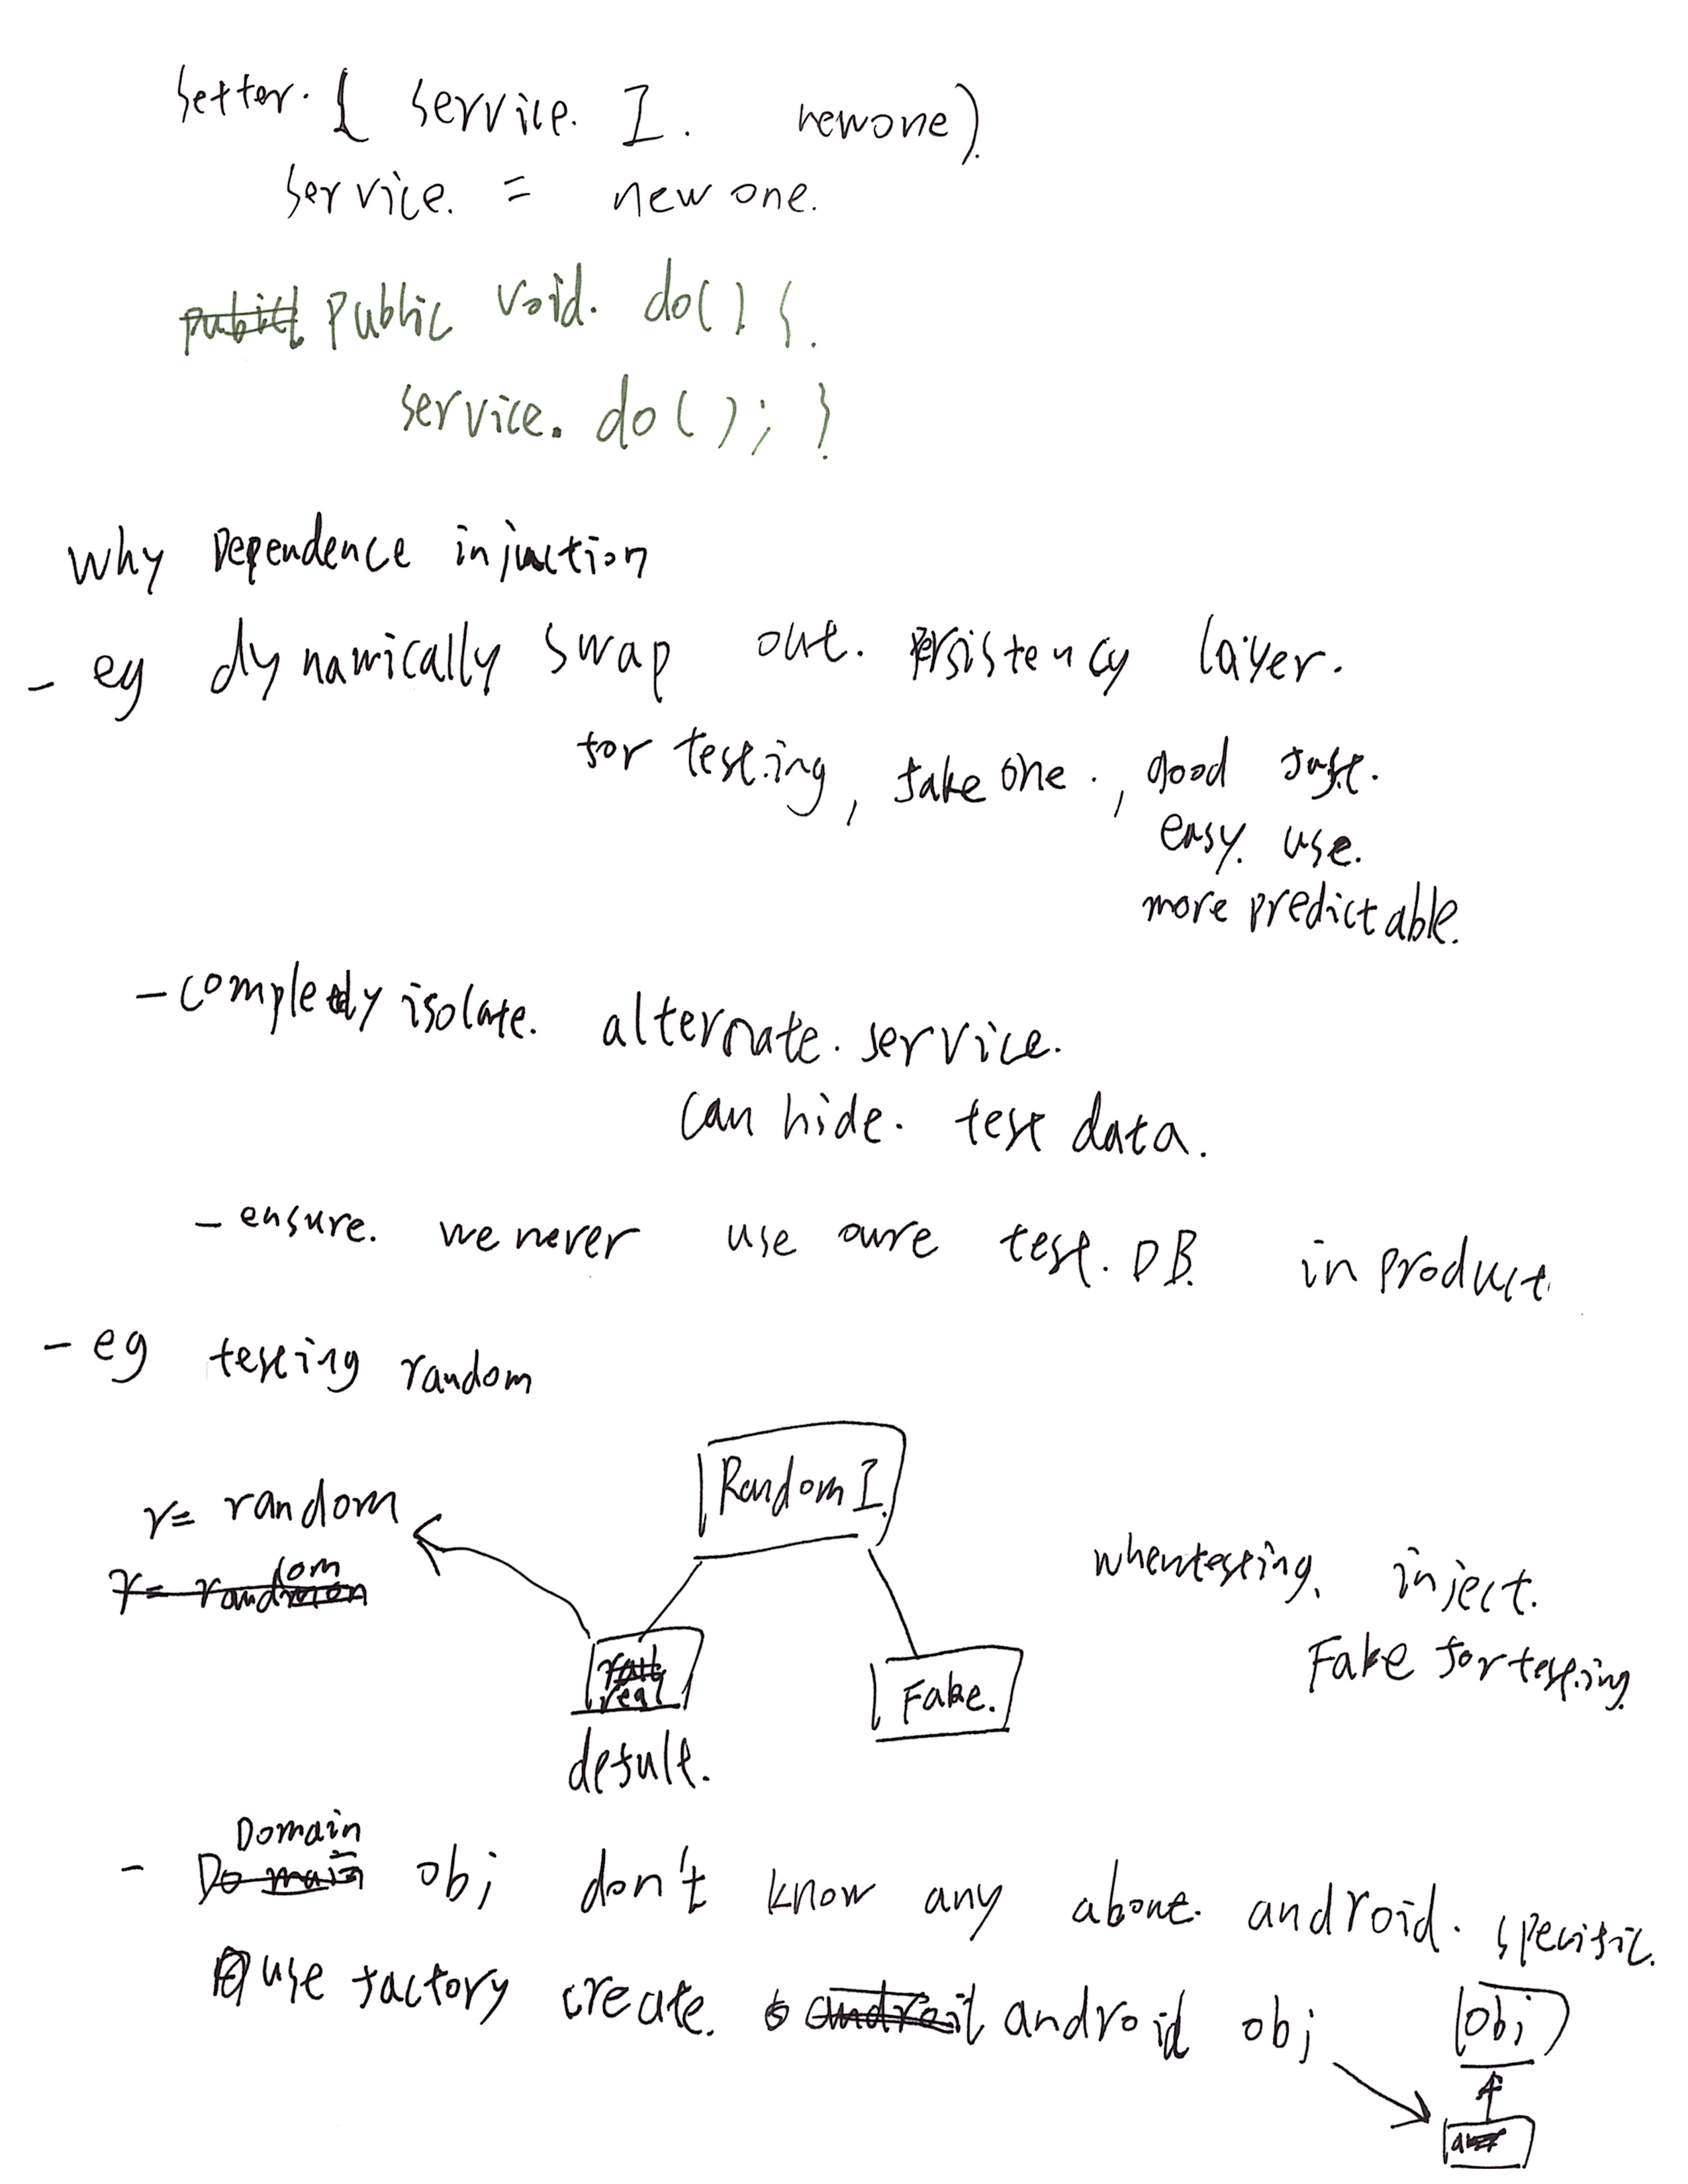 setter. { service. I. newone).
service. = new one.
public Public void. do() {.
service. do(); }
why Dependence injuction
- eg dynamically swap out. Persistency layer.
for testing, fake one., good fast.
easy. use.
more predictable.
- completely isolate. alternate. service.
can hide. test data.
- ensure. we never use oure test. DB. in product.
- eg testing random
Random I.
r= random
r= random
when testing, inject.
Fake for testing.
real
Fake.
defult.
Domain
- Domain obj don't know any about. android. specific.
use factory create. android obj
obj